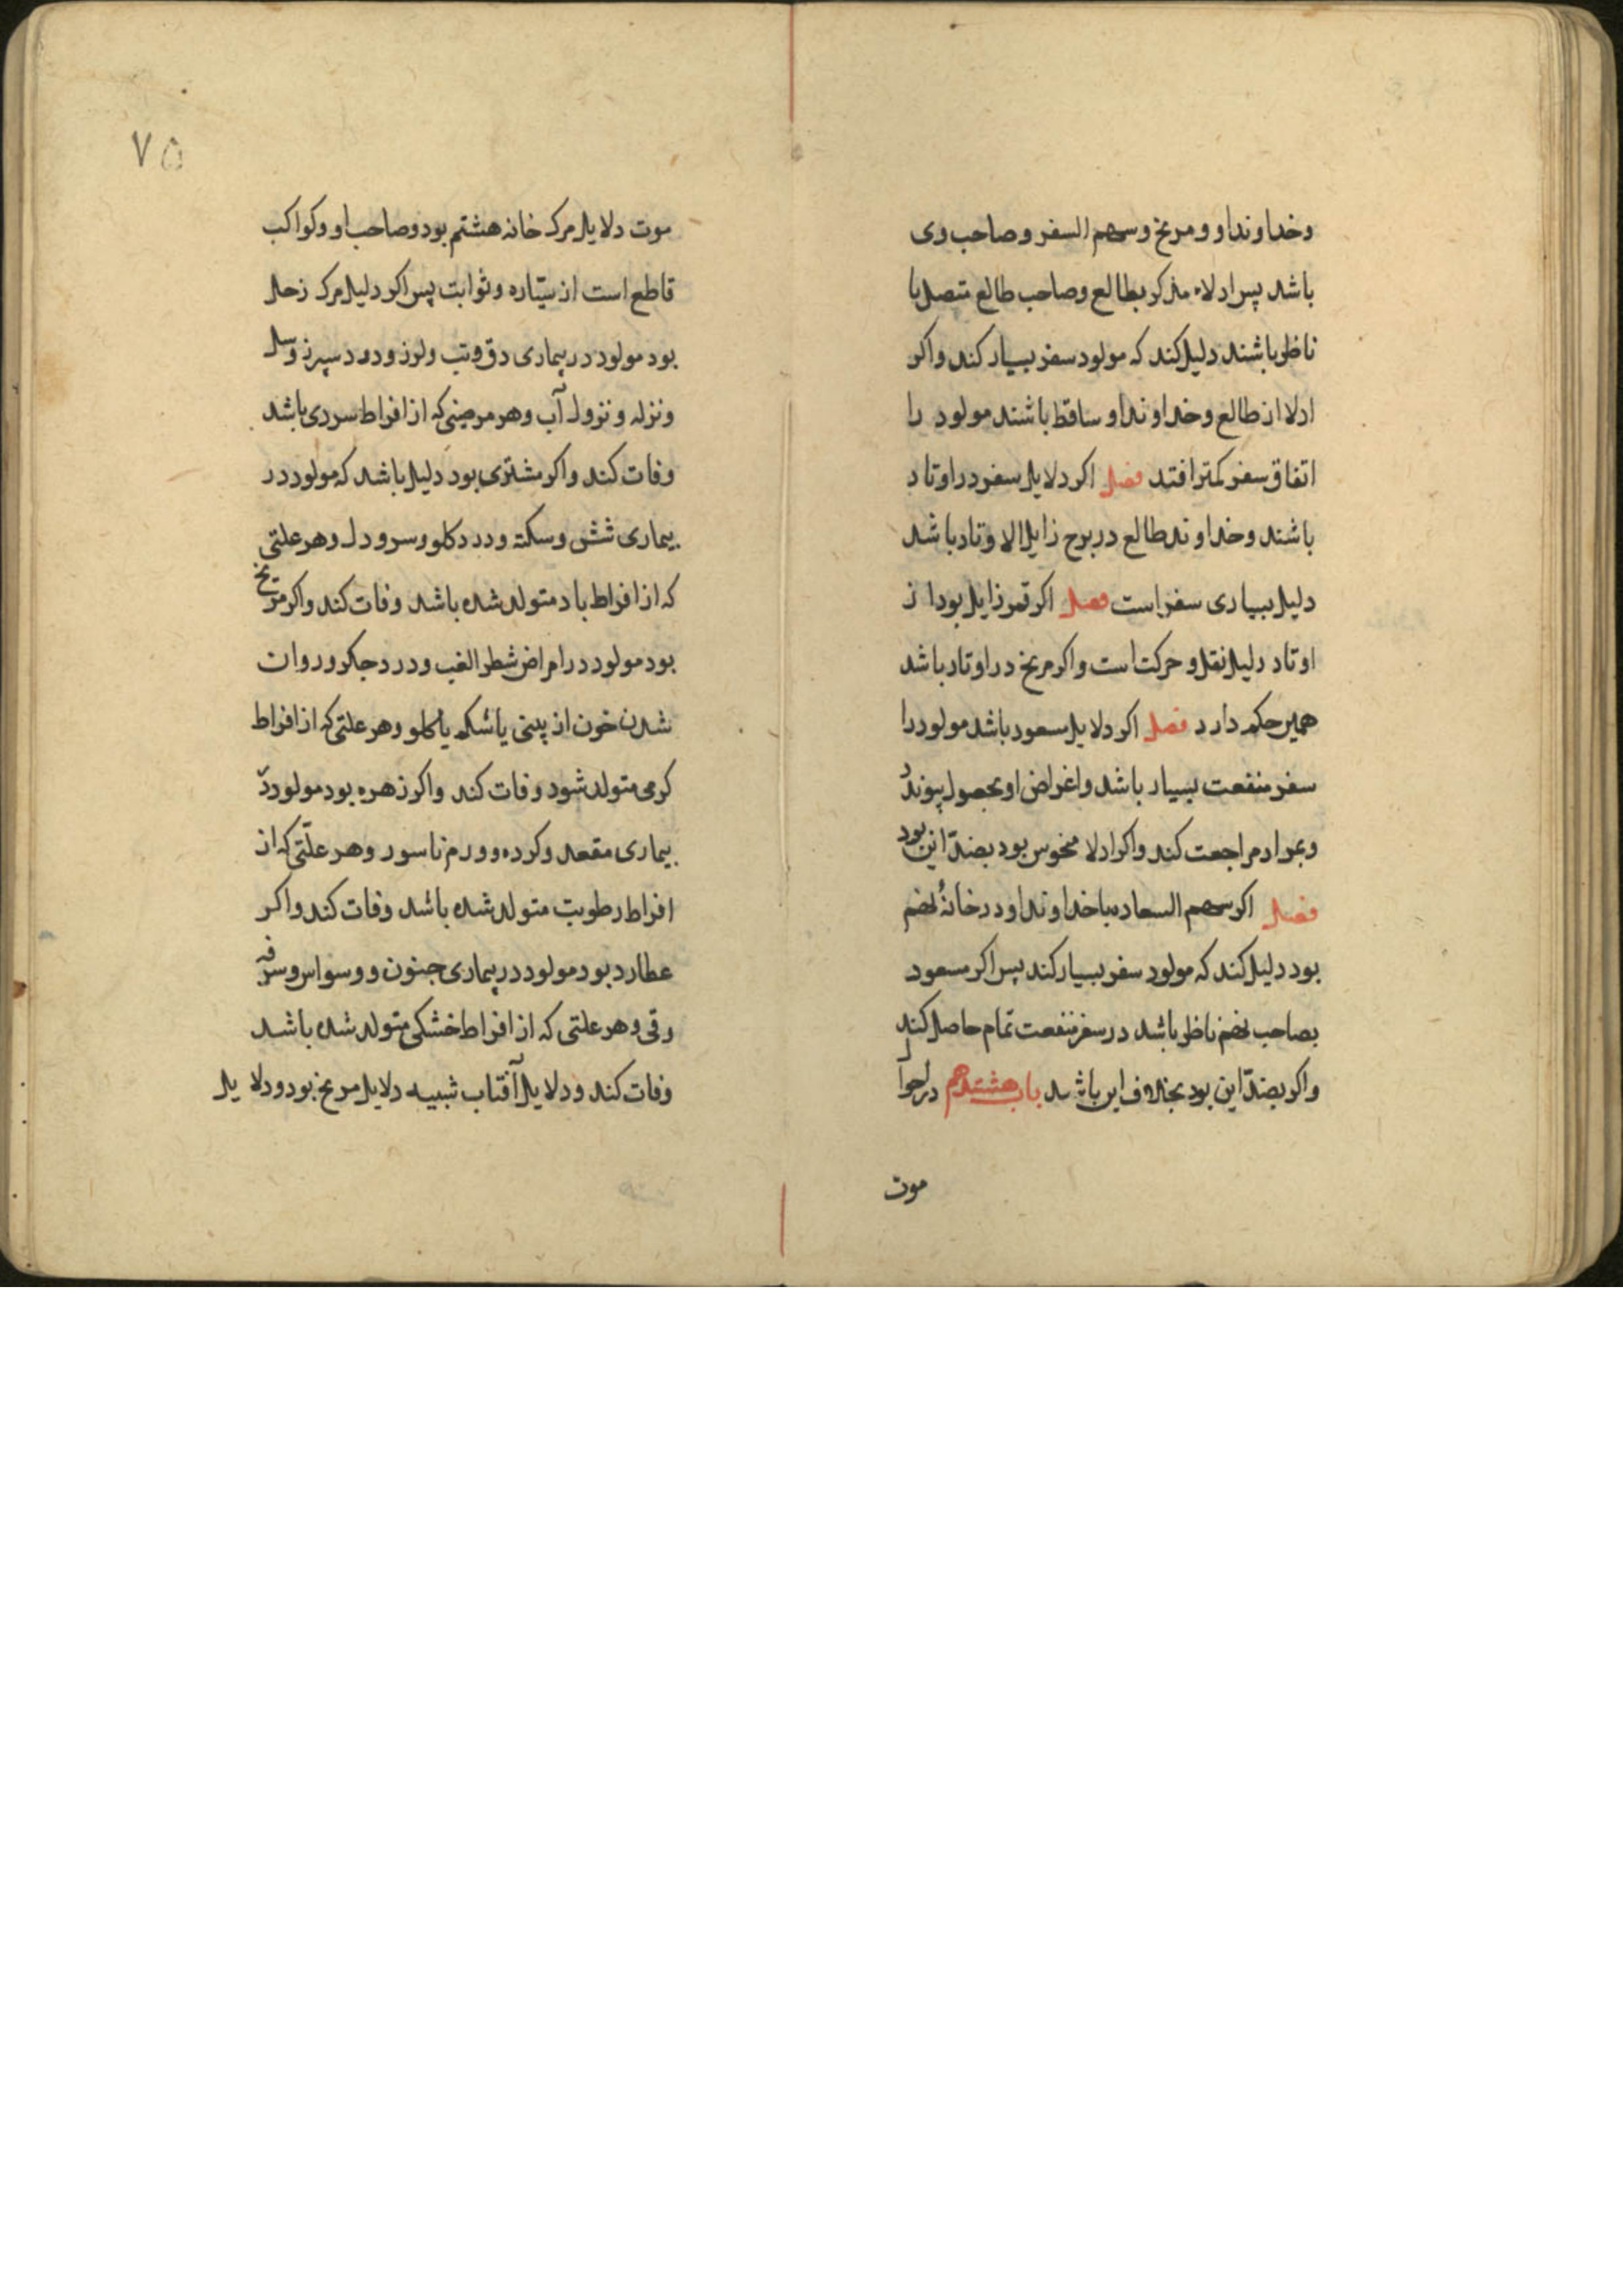 وخداوند او و مریخ و سهم السفر و صاحب وی
باشد پس ادلاء مذکر بطالع وصاحب طالع متصل یا
ناظر باشند دلیل کند که مولود سفر بسیار کند واکر
ادلا از طالع و خداوند او ساقط باشند مولود را
اتفاق سفر کمتر افتد فصل اکر دلایل سفر در اوتاد
باشند وخداوند طالع در برج زایل الاوتاد باشد
دلیل بسیاری سفر است فصل اکر قمر زایل بود از
اوتاد دلیل نقل و حرکت است واکر مریخ در اوتاد باشد
همین حکم دارد فصل اکر دلایل سعود باشد مولود را
سفر منفعت بسیار باشد واغراض او بحصول پیوندد
وبمراد مراجعت کند واکر ادلا منحوس بود بضدّ این بود
فصل اکر سهم السعاده با خداوند او در خانهٔ نهم
بود دلیل کند که مولود سفر بسیار کند پس اکر مسعود
بصاحب نهم ناظر باشد در سفر منفعت تمام حاصل کند
واکر بضدّ این بود بخلاف این باشد باب هشتدهم در احوال
موت
۷۵
موت دلایل مرک خانه هشتم بود وصاحب او وکواکب
قاطع است از سیّاره وثوابت پس اکر دلیل مرک زحل
بود مولود در بیماری دق وتب ولرز ودرد سپرز وسل
ونزله ونزول آب وهر مرضی که از افراط سردی باشد
وفات کند واکر مشتری بود دلیل باشد که مولود در
بیماری شش وسکته ودرد کلو وسر ودل وهر علتی
که از افراط باد متولد شده باشد وفات کند واکر مریخ
بود مولود در امراض شطر الغب ودرد جکر وروان
شدن خون از بینی یا شکم یا کلو وهر علتی که از افراط
کرمی متولد شود وفات کند واکر زهره بود مولود در
بیماری مقعد وکرده وورم ناسور وهر علّتی که از
افراط رطوبت متولد شده باشد وفات کند واکر
عطارد بود مولود در بیماری جنون ووسواس وسرفه
وقی وهر علتی که از افراط خشکی متولد شده باشد
وفات کند ودلایل آفتاب شبیه دلایل مریخ بود ودلایل